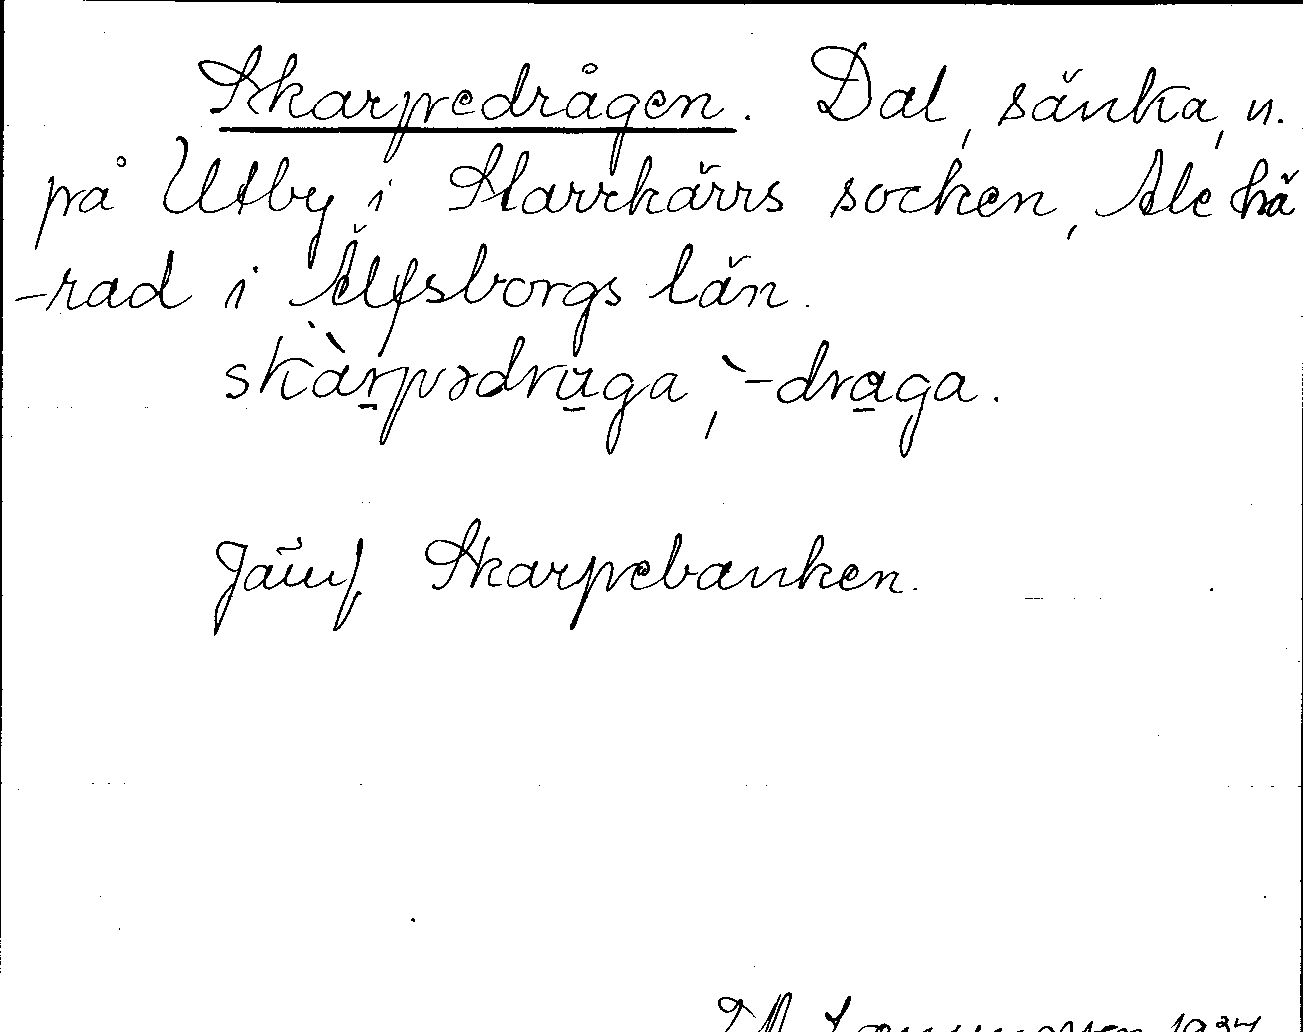 Skarpedrågen. Dal, sänka, n.
på Utby i Starrkärrs socken, Ale hä
-rad i Älfsborgs län.
skàrpədruga, `-draga.
Jämf. Skarpebanken.
1934